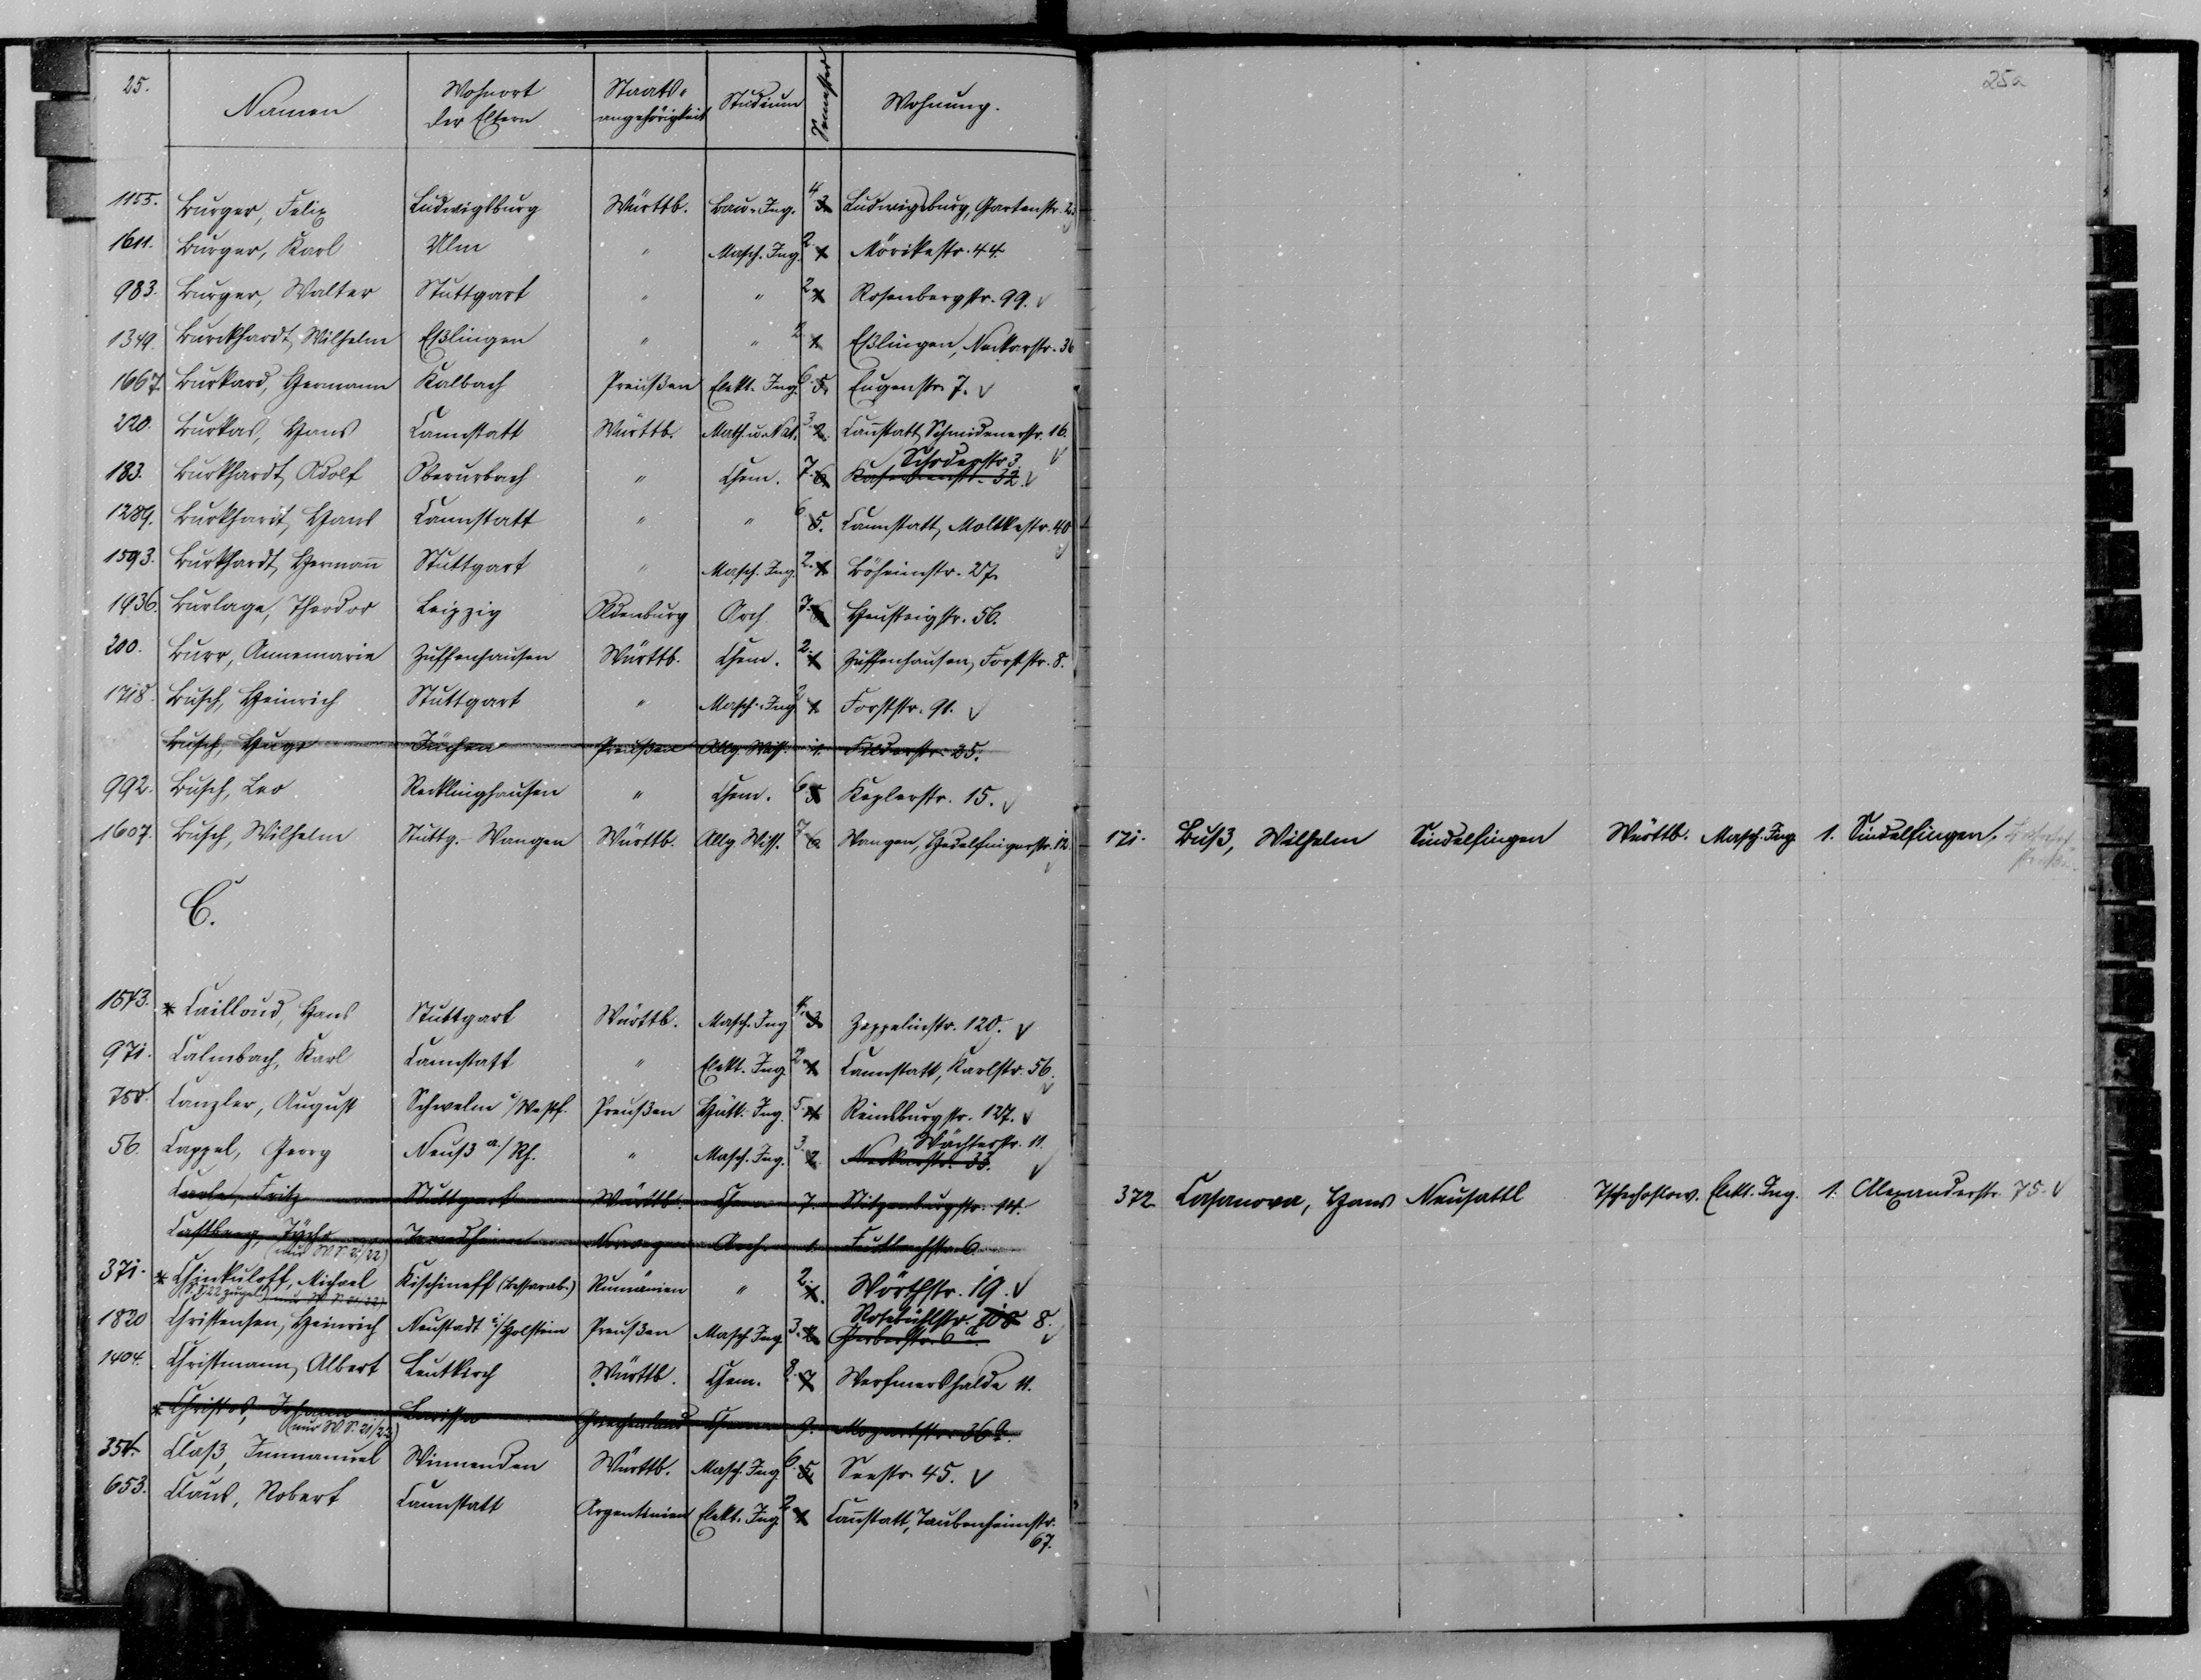 25.
Namen Wohnort der Eltern Staats-angehörigkeit Studium Semester Wohnung.
1155. Burger, Felix Ludwigsburg Württb. Bau-Ing. 4 3. Ludwigsburg, Gartenstr.
1611. Burger, Karl Ulm " Masch. Ing. 2. 1. Mörikestr. 44.
983. Burger, Walter Stuttgart " " 2. 1. Rosenbergstr. 99. √
1349. Burckhardt, Wilhelm Eßlingen " " 2. 1. Eßlingen, Neckarstr. 36
1667. Burkard, Hermann Kalbach Preußen Elekt. Ing. 6. 5. Eugenstr. 7. √
220. Burkas, Hans Cannstatt Württb. Math. u. Nat. 3. 2. Cannstatt, Schmidenerstr. 16.
Schoderstr. 3. √
183. Burkhardt, Adolf Oberurbach " Chem. 7. 6. Kasernenstr. 32. √
1289. Burkhardt, Hans Cannstatt " " 6. 5. Cannstatt, Moltkestr. 40
1593. Burkhardt, Hermann Stuttgart " Masch. Ing. 2. 1. Böheimstr. 27.
1936. Burlage, Theodor Leipzig Oldenburg Arch. 7. 6. Heusteigstr. 56.
200. Burr, Annemarie Zuffenhausen Württb. Chem. 2. 1. Zuffenhausen, Forststr. 8.
1718. Busch, Heinrich Stuttgart " Masch. Ing. 2. 1. Forststr. 91. √
Busch, Hugo Jüchen Preußen Allg. Wiss. 1. Filderstr. 25.
992. Busch, Leo Recklinghausen " Chem. 6. 5. Keplerstr. 15. √
1607. Busch, Wilhelm Stuttg.-Wangen Württb. Allg Wiss. 7. 6. Wangen, Hedelfingerstr. 12.
C.
1573. * Cailloud, Hans Stuttgart Württb. Masch. Ing 4. 3. Zeppelinstr. 120. √
971. Calmbach, Karl Cannstatt " Elekt. Ing. 2. 1. Cannstatt, Karlstr. 56.
758. Canzler, August Schwelm i/Westf. Preußen Hütt. Ing. 5. 4. Reinsburgstr. 127. √
Wächterstr. 11.
56. Cappel, Georg Neuß a./Rh. " Masch. Ing. 3. 2. Neckarstr. 33. √
Carle, Fritz Stuttgart Württb. Chem. 7. Stitzenburgstr. 14.
Castberg, Tycho Trondheim Norwegen Arch. 1. 6.
(nur W.S. 21/22)
371. * Chinkuloff, Michael Kischineff (Bessarab.) Rumänien " 2. 1. Wörthstr. 19. √
nur W.S. 21/22) Rotebühlstr. 108 8.
1820 Christensen, Heinrich Neustadt i/Holstein Preußen Masch Ing. 3. 2. Gerberstr. 6 a.
1404. Christmann, Albert Leutkirch Württb. Chem. 8. 7. Werfmershalde 11.
* Christos, Johann Larissa Griechenland Chem. 9. Mozartstr. 36 a.
(nur W.S. 21/22)
354. Claß, Immanuel Winnenden Württb. Masch. Ing. 6. 5. Seestr. 45. √
653. Claus, Robert Cannstatt Argentinien Elekt. Ing. 2. 1. Cannstatt, Taubenheimstr.
67.
25a
171. Buß, Wilhelm Sindelfingen Württb. Masch. Ing. 1. Sindelfingen,
372 Casanova, Hans Neusattl Tschechoslow. Elekt. Ing. 1. Alexanderstr. 75. √